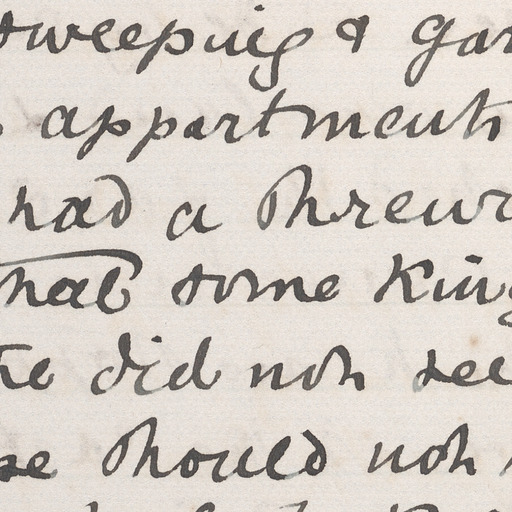 sweeping & gar
appartments
had a Threw
that some King
he did not see
se should not